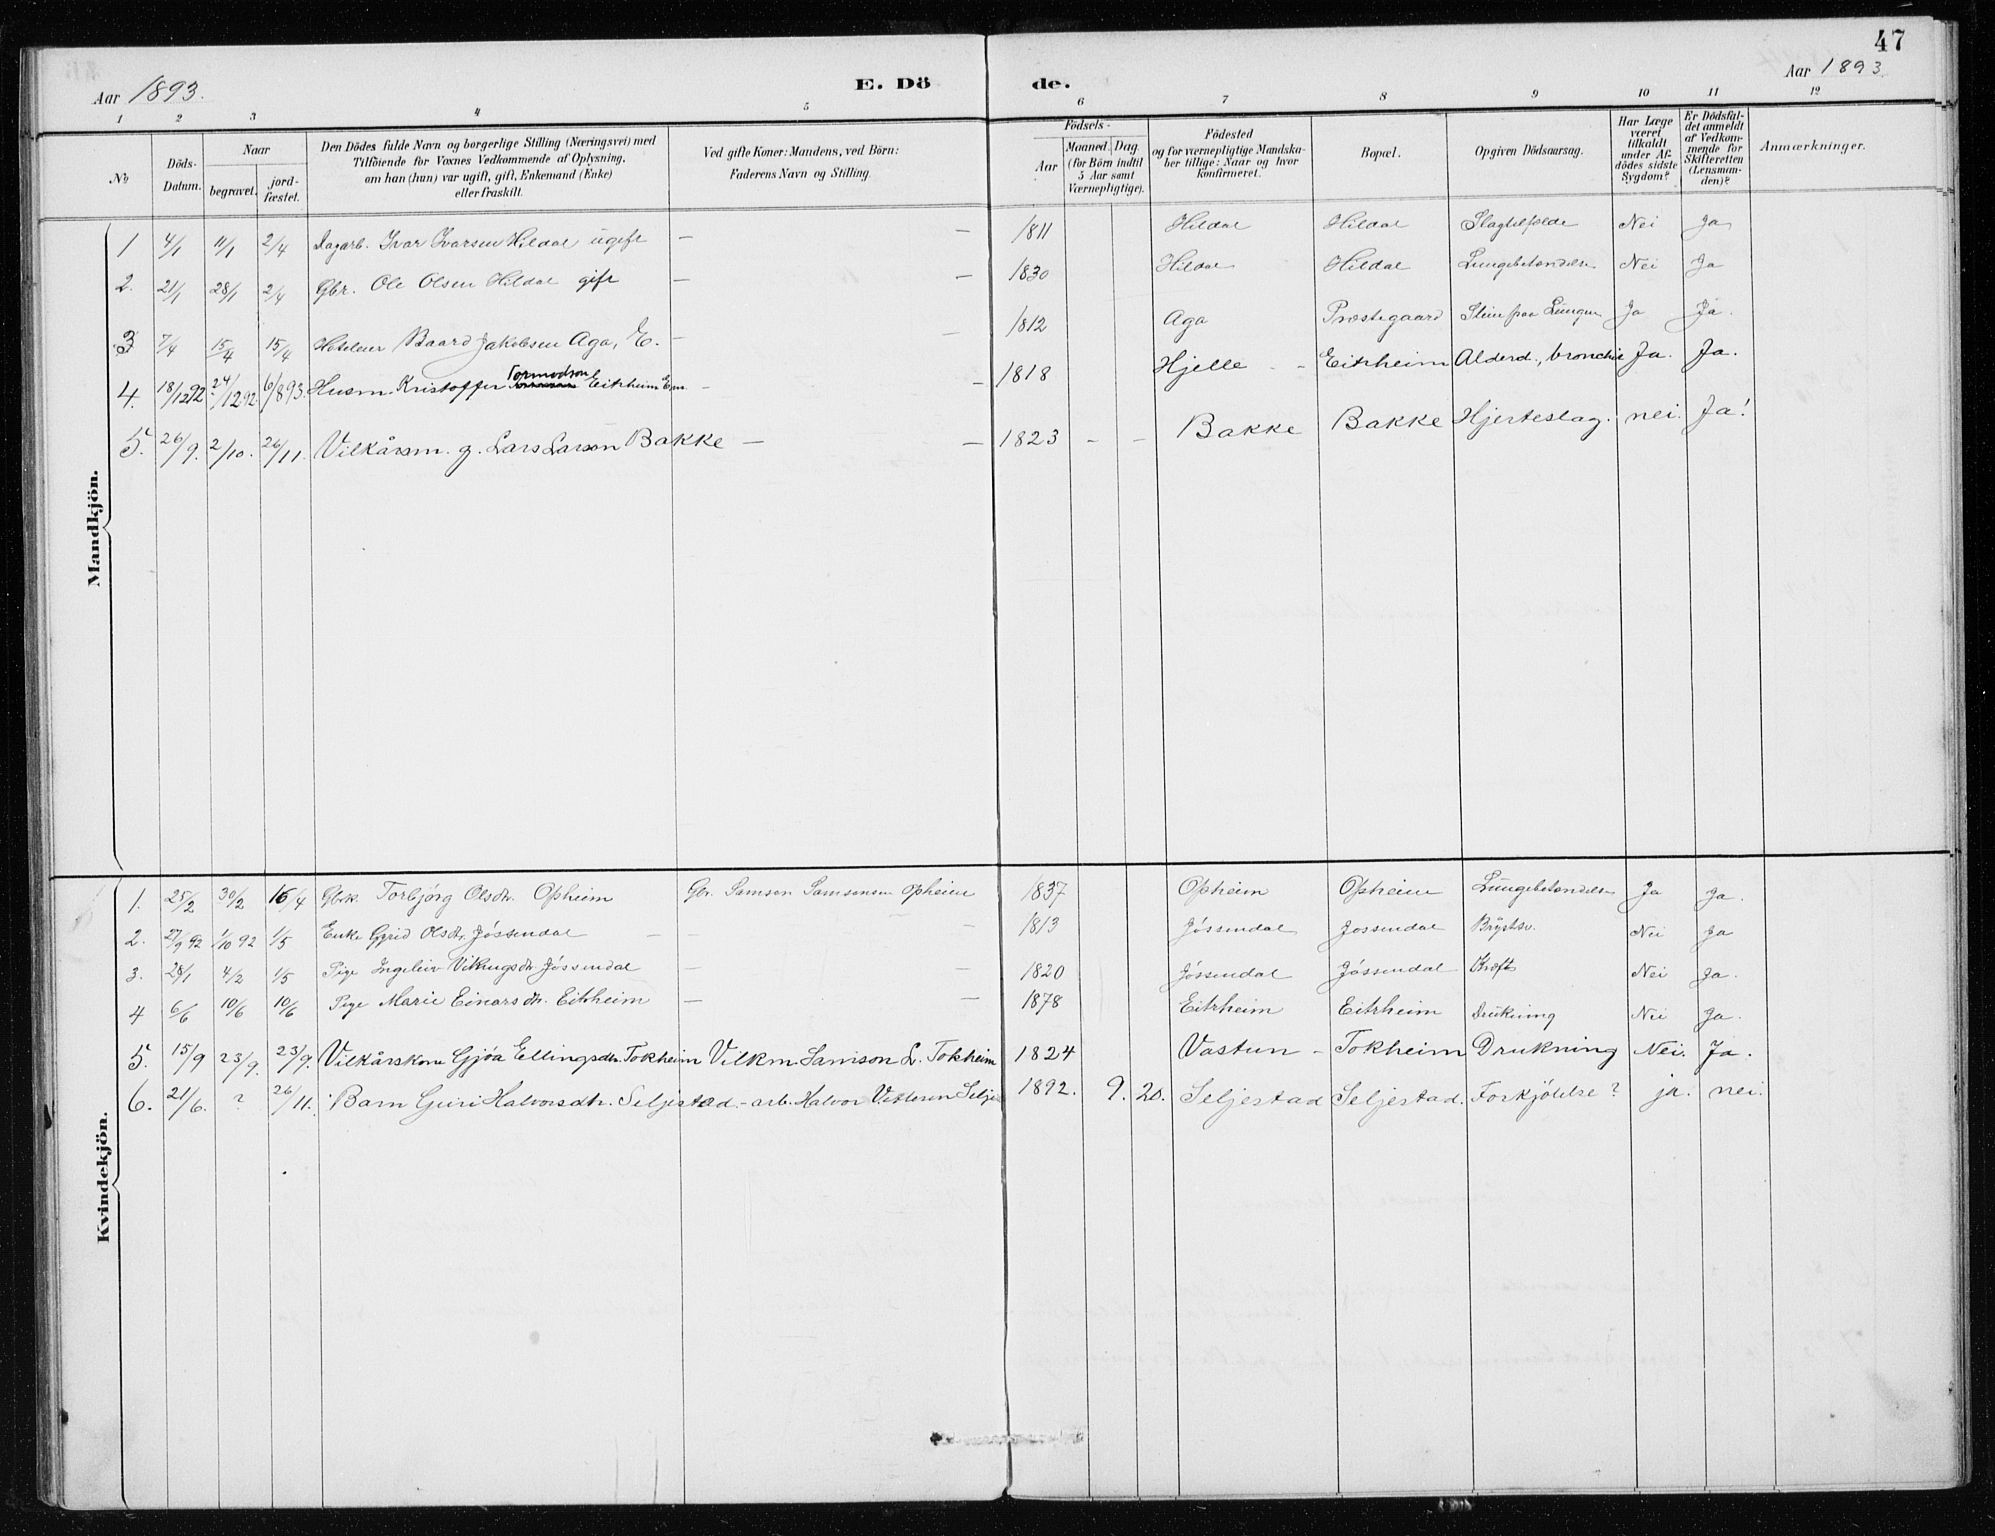 47
Aar 1893.
E. Dö
de.
Aar 1893.
1 2 3 4 5 6 7 8 9 10 11 12
No
Döds-Datum.
Naar
begravet.
jord-fæstet.
Den Dödes fulde Navn og borgerlige Stilling (Næringsvei) med
Tilföiende for Voxnes Vedkommende af Oplysning,
om han (hun) var ugift, gift, Enkemand (Enke)
eller fraskilt.
Ved gifte Koner: Mandens, ved Börn:
Faderens Navn og Stilling.
Födsels-
Aar
Maaned. Dag.
(for Börn indtil
5 Aar samt
Værnepligtige).
Födested
og for værnepligtige Mandska-
ber tillige: Naar og hvor
konfirmeret.
Bopæl.
Opgiven Dödsaarsag.
Har Læge
været
tilkaldt
under Af-
dödes sidste
Sygdom?
Er Dödsfal-
det anmeldt
af Vedkom-
mende for
Skifteretten
(Lensman-
den)?
Anmærkninger.
Mandkjön.
1 4/1 11/1 2/4 Dagarb. Ivar Ivarsen Hildal ugift — — 1811 Hildal Hildal Slagtilfælde Nei Ja
2. 21/1 28/1 2/4 Gbr. Ole Olsen Hildal gift — — 1830 Hildal Hildal Lungebetændelse Nei Ja
3 7/4 15/4 15/4 Hoteleier Baard Jakobsen Aga, E. — — 1812 Aga Præstegaard Sliim paa Lungen Ja Ja.
4. 18/12 92 24/12 92. 6/8 93. Husm. Kristoffer Tormodson Eitrheim Em. — — 1818 Hjelle - Eitrheim Alderd., bronchit Ja. Ja.
5. 26/9. 2/10. 26/11. Vilkårsm. g. Lars Larson Bakke — — 1823 – – Bakke Bakke Hjerteslag. nei. Ja!
Kvindekjön.
1. 25/2 30/2 16/4 Gbrk. Torbjørg Olsdtr. Opheim Gbr. Samson Samsonsen Opheim 1837 Opheim Opheim Lungebetændelse Ja Ja.
2. 27/9 92 1/10 92 1/5 Enke Gyrid Olsdtr. Jøssendal — — 1813 Jøssendal Jøssendal Brÿstsv. Nei Ja
3. 28/1 4/2 1/5 Pige Ingeleiv Vikingsdtr Jøssendal — — 1820 Jøssendal Jøssendal Kræft Nei Ja.
4 6/6 10/6 10/6 Pige Marie Einarsdtr. Eitrheim — — 1878 Eitrheim Eitrheim Drukning Nei Ja.
5. 15/9 23/9. 23/9. Vilkårskone Gjøa Ellingsdtr. Tokheim Vilkm. Samson L. Tokheim 1824 Vastun - Tokheim Drukning Nei. Ja.
6. 21/6. ? 26/11. Barn Guri Halvorsdtr. Seljestad.- arb. Halvor Vetleren Selje 1892. 9. 20. Seljestad Seljestad. Forkjølelse? ja. nei.